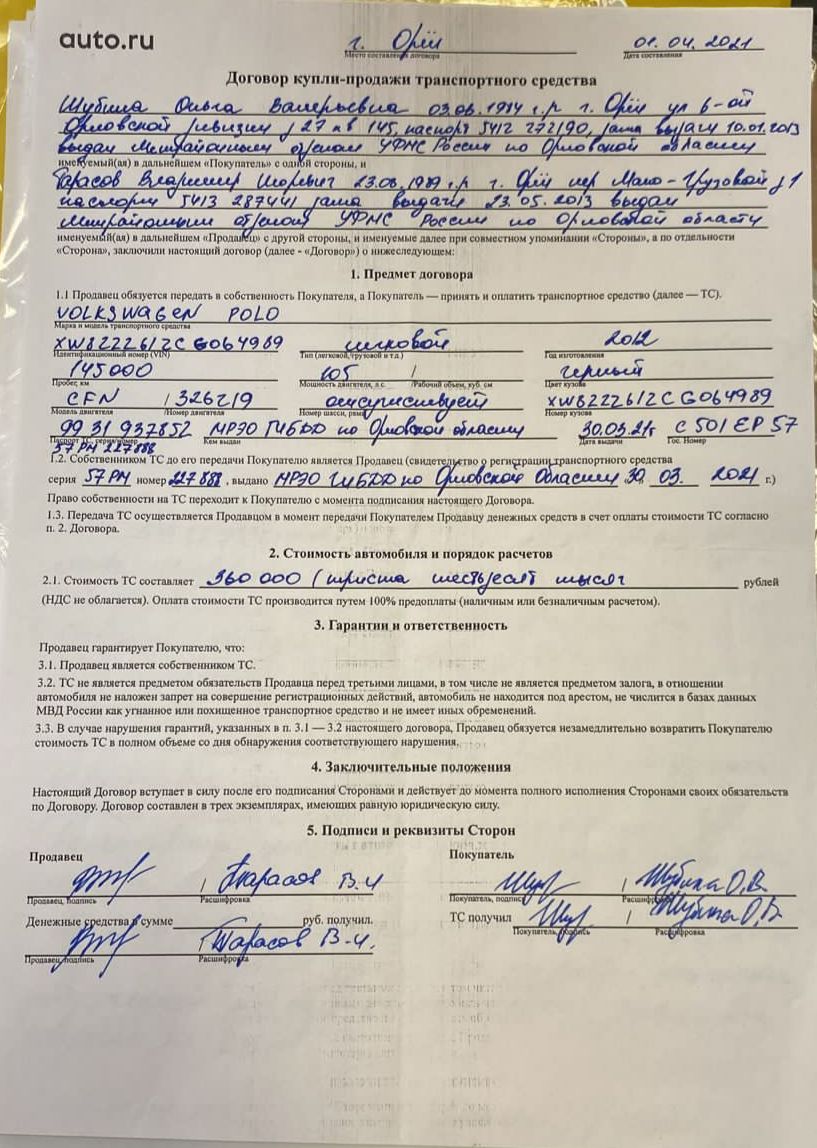 auto.ru
г. Орёл 01.04.2021
Место составления договора Дата составления
Договор купли-продажи транспортного средства
Шубина Ольга Валерьевна 03.06.1974 г.р г. Орёл ул 6-ой
Орловской дивизии д 27 кв 145, паспорт 5412 272190, дата выдачи 10.01.2013
выдан Межрайонным отделом УФМС России по Орловской области
именуемый(ая) в дальнейшем «Покупатель» с одной стороны, и
Тарасов Владимир Игоревич 23.08.1989 г.р г. Орёл пер Мало-Грузовой д 1
паспорт 5413 287441 дата выдачи 23.05.2013 выдан
Межрайонным отделом УФМС России по Орловской области
именуемый(ая) в дальнейшем «Продавец» с другой стороны, и именуемые далее при совместном упоминании «Стороны», а по отдельности
«Сторона», заключили настоящий договор (далее - «Договор») о нижеследующем:
1. Предмет договора
1.1 Продавец обязуется передать в собственность Покупателя, а Покупатель — принять и оплатить транспортное средство (далее — ТС).
VOLKSWAGEN POLO
Марка и модель транспортного средства
легковой 2012
Идентификационный номер (VIN) Тип (легковой, грузовой и т.д.) Год изготовления
145000 105 / черный
Пробег, км Мощность двигателя, л.с. /Рабочий объем, куб. см Цвет кузова
CFN / 326219 отсутствует
Модель двигателя /Номер двигателя Номер шасси, рамы Номер кузова
99 31 937852 МРЭО ГИБДД по Орловской области 30.03.21г С 501 ЕР 57
Паспорт ТС, серия/номер Кем выдан Дата выдачи Гос. Номер
57 РМ 227888
1.2. Собственником ТС до его передачи Покупателю является Продавец (свидетельство о регистрации транспортного средства
серия 57 РМ номер 227 888, выдано МРЭО ГИБДД по Орловской Области 30. 03. 2021 г.)
Право собственности на ТС переходит к Покупателю с момента подписания настоящего Договора.
1.3. Передача ТС осуществляется Продавцом в момент передачи Покупателем Продавцу денежных средств в счет оплаты стоимости ТС согласно
п. 2. Договора.
2. Стоимость автомобиля и порядок расчетов
2.1. Стоимость ТС составляет 360 000 / триста шестьдесят тысяч рублей
(НДС не облагается). Оплата стоимости ТС производится путем 100% предоплаты (наличным или безналичным расчетом).
3. Гарантии и ответственность
Продавец гарантирует Покупателю, что:
3.1. Продавец является собственником ТС.
3.2. ТС не является предметом обязательств Продавца перед третьими лицами, в том числе не является предметом залога, в отношении
автомобиля не наложен запрет на совершение регистрационных действий, автомобиль не находится под арестом, не числится в базах данных
МВД России как угнанное или похищенное транспортное средство и не имеет иных обременений.
3.3. В случае нарушения гарантий, указанных в п. 3.1 — 3.2 настоящего договора, Продавец обязуется незамедлительно возвратить Покупателю
стоимость ТС в полном объеме со дня обнаружения соответствующего нарушения.
4. Заключительные положения
Настоящий Договор вступает в силу после его подписания Сторонами и действует до момента полного исполнения Сторонами своих обязательств
по Договору. Договор составлен в трех экземплярах, имеющих равную юридическую силу.
5. Подписи и реквизиты Сторон
Продавец Покупатель
/ Тарасов В.И / Шубина О.В.
Продавец, подпись Расшифровка Покупатель, подпись Расшифровка
Денежные средства в сумме руб. получил. ТС получил / Шубина О.В.
Покупатель, подпись Расшифровка
/ Тарасов В.И.
Продавец, подпись Расшифровка